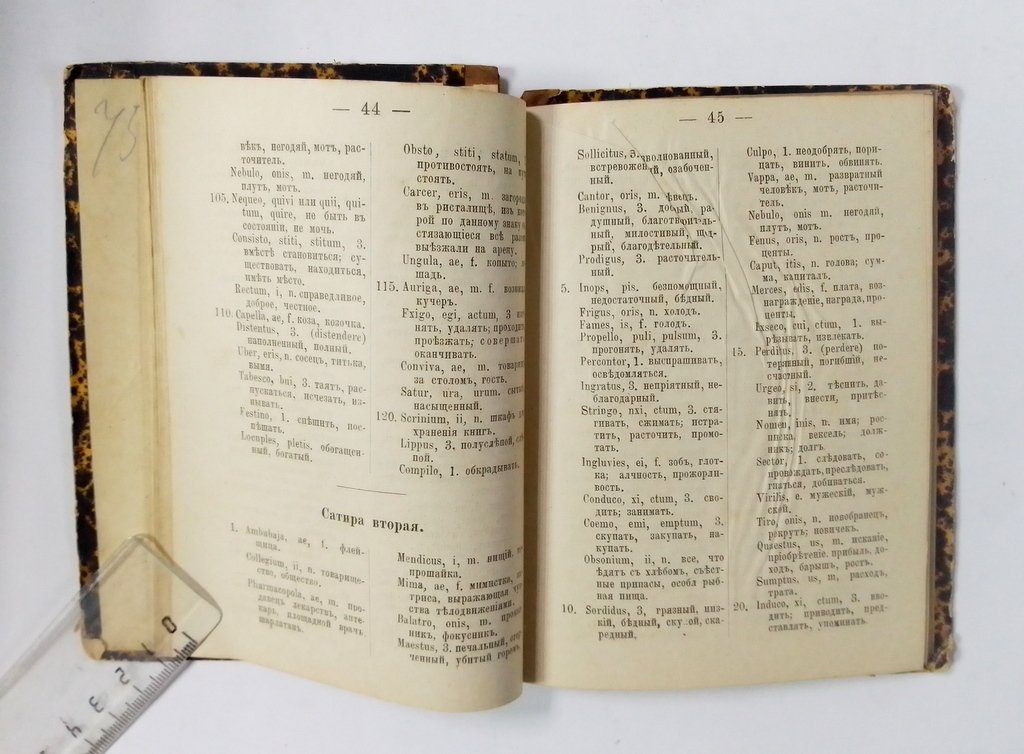 — 44 —
вѣкъ, негодяй, мотъ, рас-
точитель.
Nebulo, onis, m. негодяй,
плутъ, мотъ.
105. Nequeo, quivi или quii, qui-
tum, quire, не быть въ
состояніи, не мочь.
Consisto, stiti, stitum, 3.
вмѣстѣ становиться; су-
ществовать, находиться,
имѣть мѣсто.
Rectum, i, n. справедливое,
доброе, честное.
110. Capella, ae, f. коза, козочка.
Distentus, 3. (distendere)
наполненный, полный.
Uber, eris, n. сосецъ, титька,
вымя.
Tabesco, bui, 3. таять, рас-
пускаться, исчезать, из-
нывать.
Festino, 1. спѣшить, пос-
пѣшать.
Locuples, pletis. обогащен-
ный, богатый.
Obsto, stiti, statum,
противостоять, на
стоять.
Carcer, eris, m.
въ ристалищѣ, изъ
рой по данному знаку
стязающіеся всѣ
выѣзжали на арену.
Ungula, ae, f. копыто;
шадь.
115. Auriga, ae, m. f.
кучеръ.
Exigo, egi, actum, 3
нять, удалять;
проѣзжать;
оканчивать.
Conviva, ae, m.
за столомъ, гость.
Satur, ura, urum.
насыщенный.
120. Scrinium, ii, n. шкафъ
храненія книгъ.
Lippus, 3. полуслѣпой,
пой.
Compilo, 1. обкрадывать.
Сатира вторая.
1. Ambubaja, ae, f. флей-
щица.
Collegium, ii, n. товарище-
ство, общество.
Pharmacopola, ae, m. про-
давецъ лекарствъ, апте-
карь, площадной врачъ
шарлатанъ.
Mendicus, i, m. нищій,
прошайка.
Mima, ae, f. мимистка,
триса, выражающая
ства тѣлодвиженіями.
Balatro, onis, m.
никъ, фокусникъ.
Maestus, 3. печальный,
ченный, убитый горемъ.
— 45 —
Sollicitus, 3. взволнованный,
встревоженный, озабочен-
ный.
Cantor, oris, m. пѣвецъ.
Benignus, 3. добрый, ра-
душный, благотворитель-
ный, милостивый, щед-
рый, благодѣтельный.
Prodigus, 3. расточитель-
ный.
5. Inops, pis. безпомощный,
недостаточный, бѣдный.
Frigus, oris, n. холодъ.
Fames, is, f. голодъ.
Propello, puli, pulsum, 3.
прогонять, удалять.
Percontor, 1. выспрашивать,
освѣдомляться.
Ingratus, 3. непріятный, не-
благодарный.
Stringo, nxi, ctum, 3. стя-
гивать, сжимать; истра-
тить, расточить, промо-
тать.
Ingluvies, ei, f. зобъ, глот-
ка; алчность, прожорли-
вость.
Conduco, xi, ctum, 3. сво-
дить; занимать.
Coemo, emi, emptum, 3.
скупать, закупать, на-
купать.
Obsonium, ii, n. все, что
ѣдятъ съ хлѣбомъ, съѣст-
ные припасы, особл рыб-
ная пища.
10. Sordidus, 3, грязный, низ-
кій, бѣдный, скупой, ска-
редный,
Culpo, 1. неодобрять, пори-
цать, винить. обвинять.
Vappa, ae, m. развратный
человѣкъ, мотъ, расточи-
тель.
Nebulo, onis m. негодяй,
плутъ, мотъ.
Fenus, oris, n. ростъ, про-
центы.
Caput, itis, n. голова; сум-
ма, капиталъ.
Merces, edis, f. плата, воз-
награжденіе, награда, про-
центы.
Exseco, cui, ctum, 1. вы-
рѣзывать, извлекать.
15. Perditus, 3. (perdere) по-
терянный, погибшій, не-
счастный.
Urgeo, si, 2. тѣснить, да-
вить, внести, притѣс-
нять.
Nomen, inis, n. имя; рос-
писка, вексель; долж-
никъ; долгъ.
Sector, 1. слѣдовать, со-
провождать, преслѣдовать,
гнаться, добиваться.
Virilis, e. мужескій, муж-
ской.
Tiro, onis, n. новобранецъ,
рекрутъ; новичекъ.
Quaestus, us, m. исканіе,
пріобрѣтеніе, прибыль, до-
ходъ, барышъ, ростъ.
Sumptus, us, m, расходъ,
трата.
20. Induco, xi, ctum, 3. вво-
дить; приводить, пред-
ставлять, упоминать
0 1 2 3 4